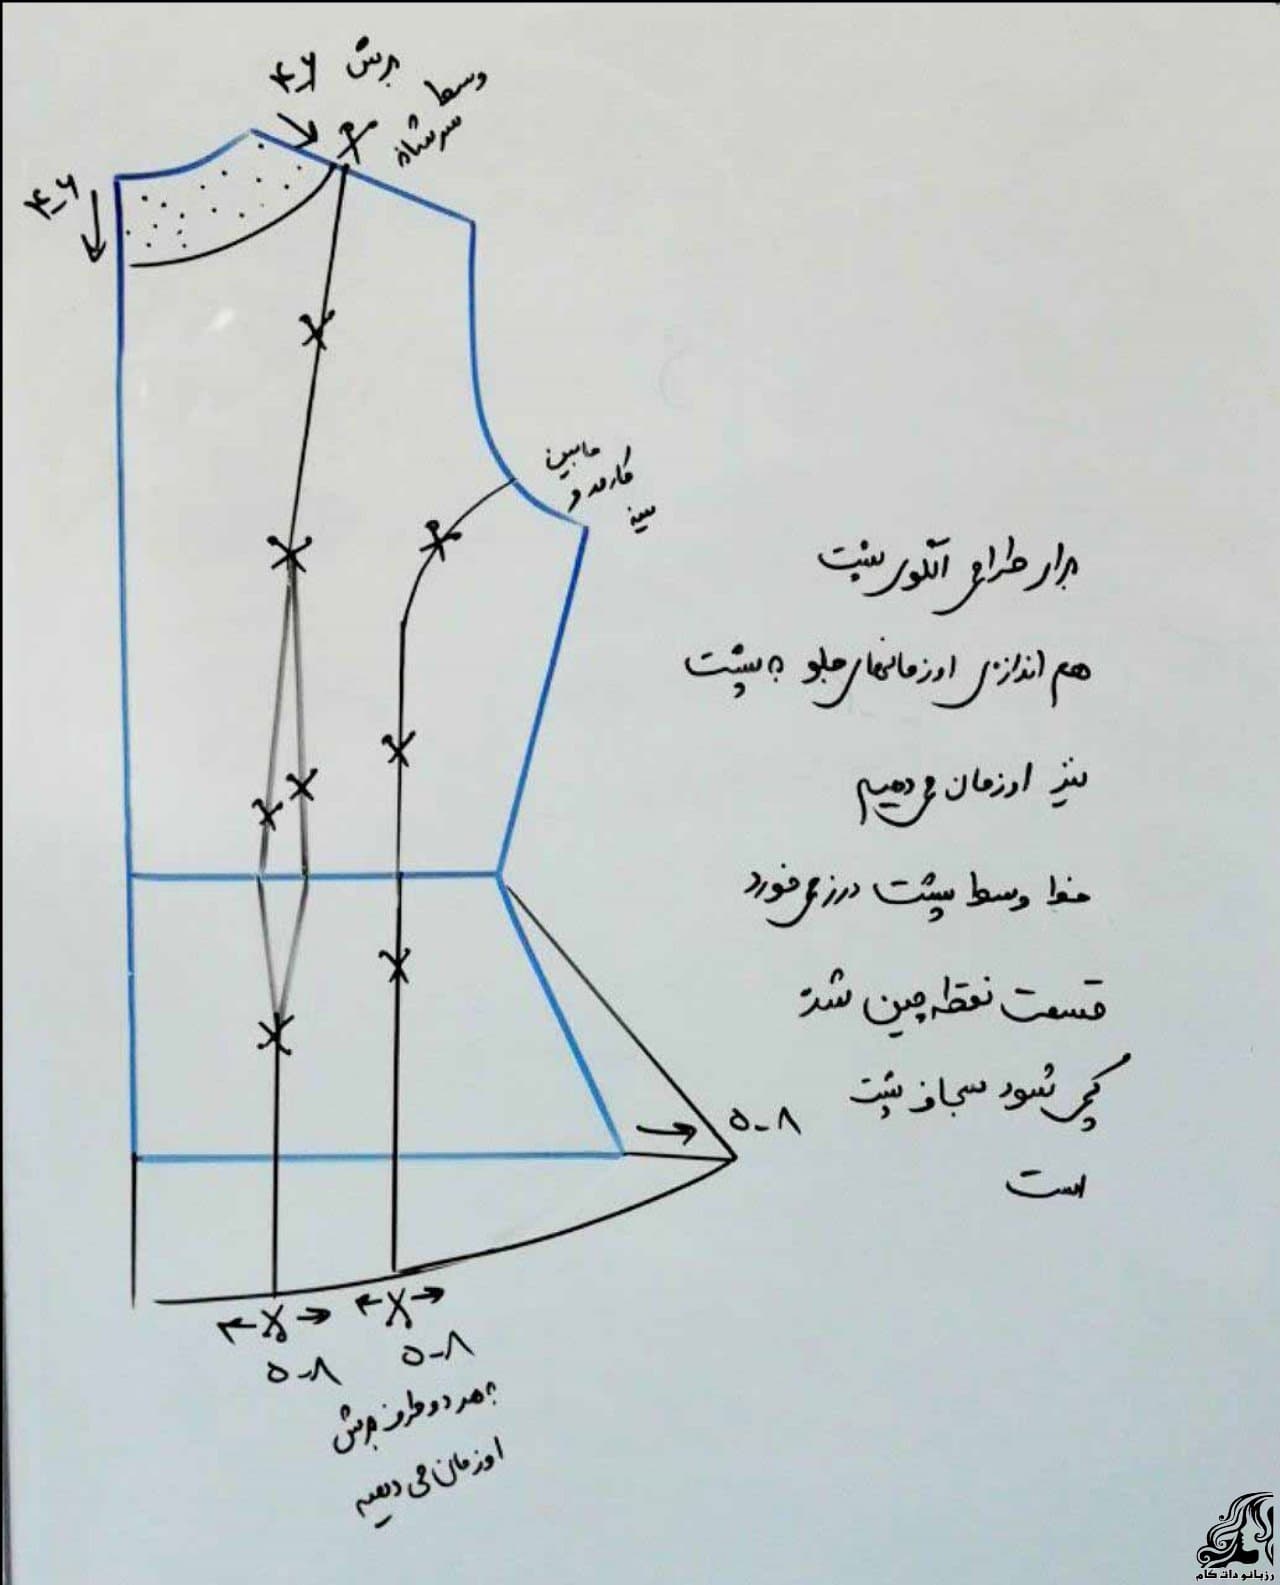 برش ۴-۶
وسط
سرشانه
۴-۶
مابین
کارور و
سینه
برای طراحی الگوی پشت
هم اندازه‌ی اوزمانهای جلو به پشت
نیز اوزمان می دهیم
خط وسط پشت درز می خورد
قسمت نقطه چین شده
کپی شود سجاف پشت
است
۵-۸
۵-۸
۵-۸
به هر دو طرف برش
اوزمان می دهیم
رزبانو دات کام